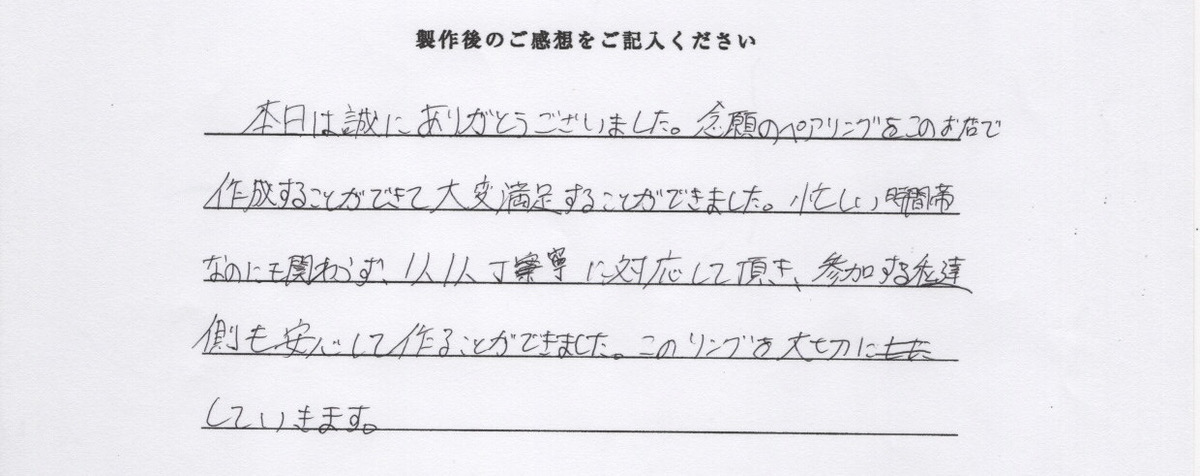 製作後のご感想をご記入ください
本日は誠にありがとうございました。念願のペアリングをこのお店で
作成することができて大変満足することができました。忙しい時間帯
なのにも関わらず、1人1人丁寧に対応して頂き、参加する私達
側も安心して作ることができました。このリングを大切に
していきます。